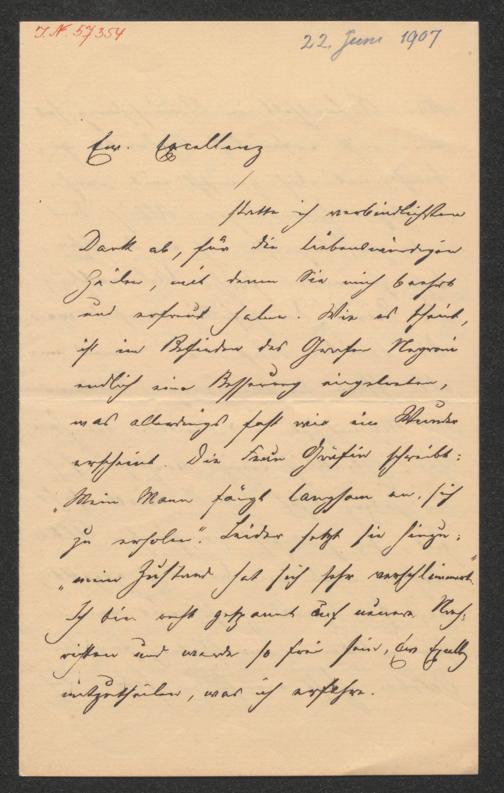 I.N. 57354
22. Juni 1907
Ew. Excellenz
statte ich verbindlichsten
Dank ab, für die liebenswürdigen
Zeilen, mit denen Sie mich beehrt
und erfreut haben. Wie es scheint,
ist im Befinden des Grafen Negroni
endlich eine Besserung eingetreten,
was allerdings fast wie ein Wunder
erscheint. Die Frau Gräfin schreibt:
„Mein Mann fängt langsam an, sich
zu erholen". Leider setzt sie hinzu:
„mein Zustand hat sich sehr verschlimmert"
Ich bin recht gespannt auf neuere Nach-
richten und werde so frei sein, Ew Exzell
mitzutheilen, was ich erfahre.